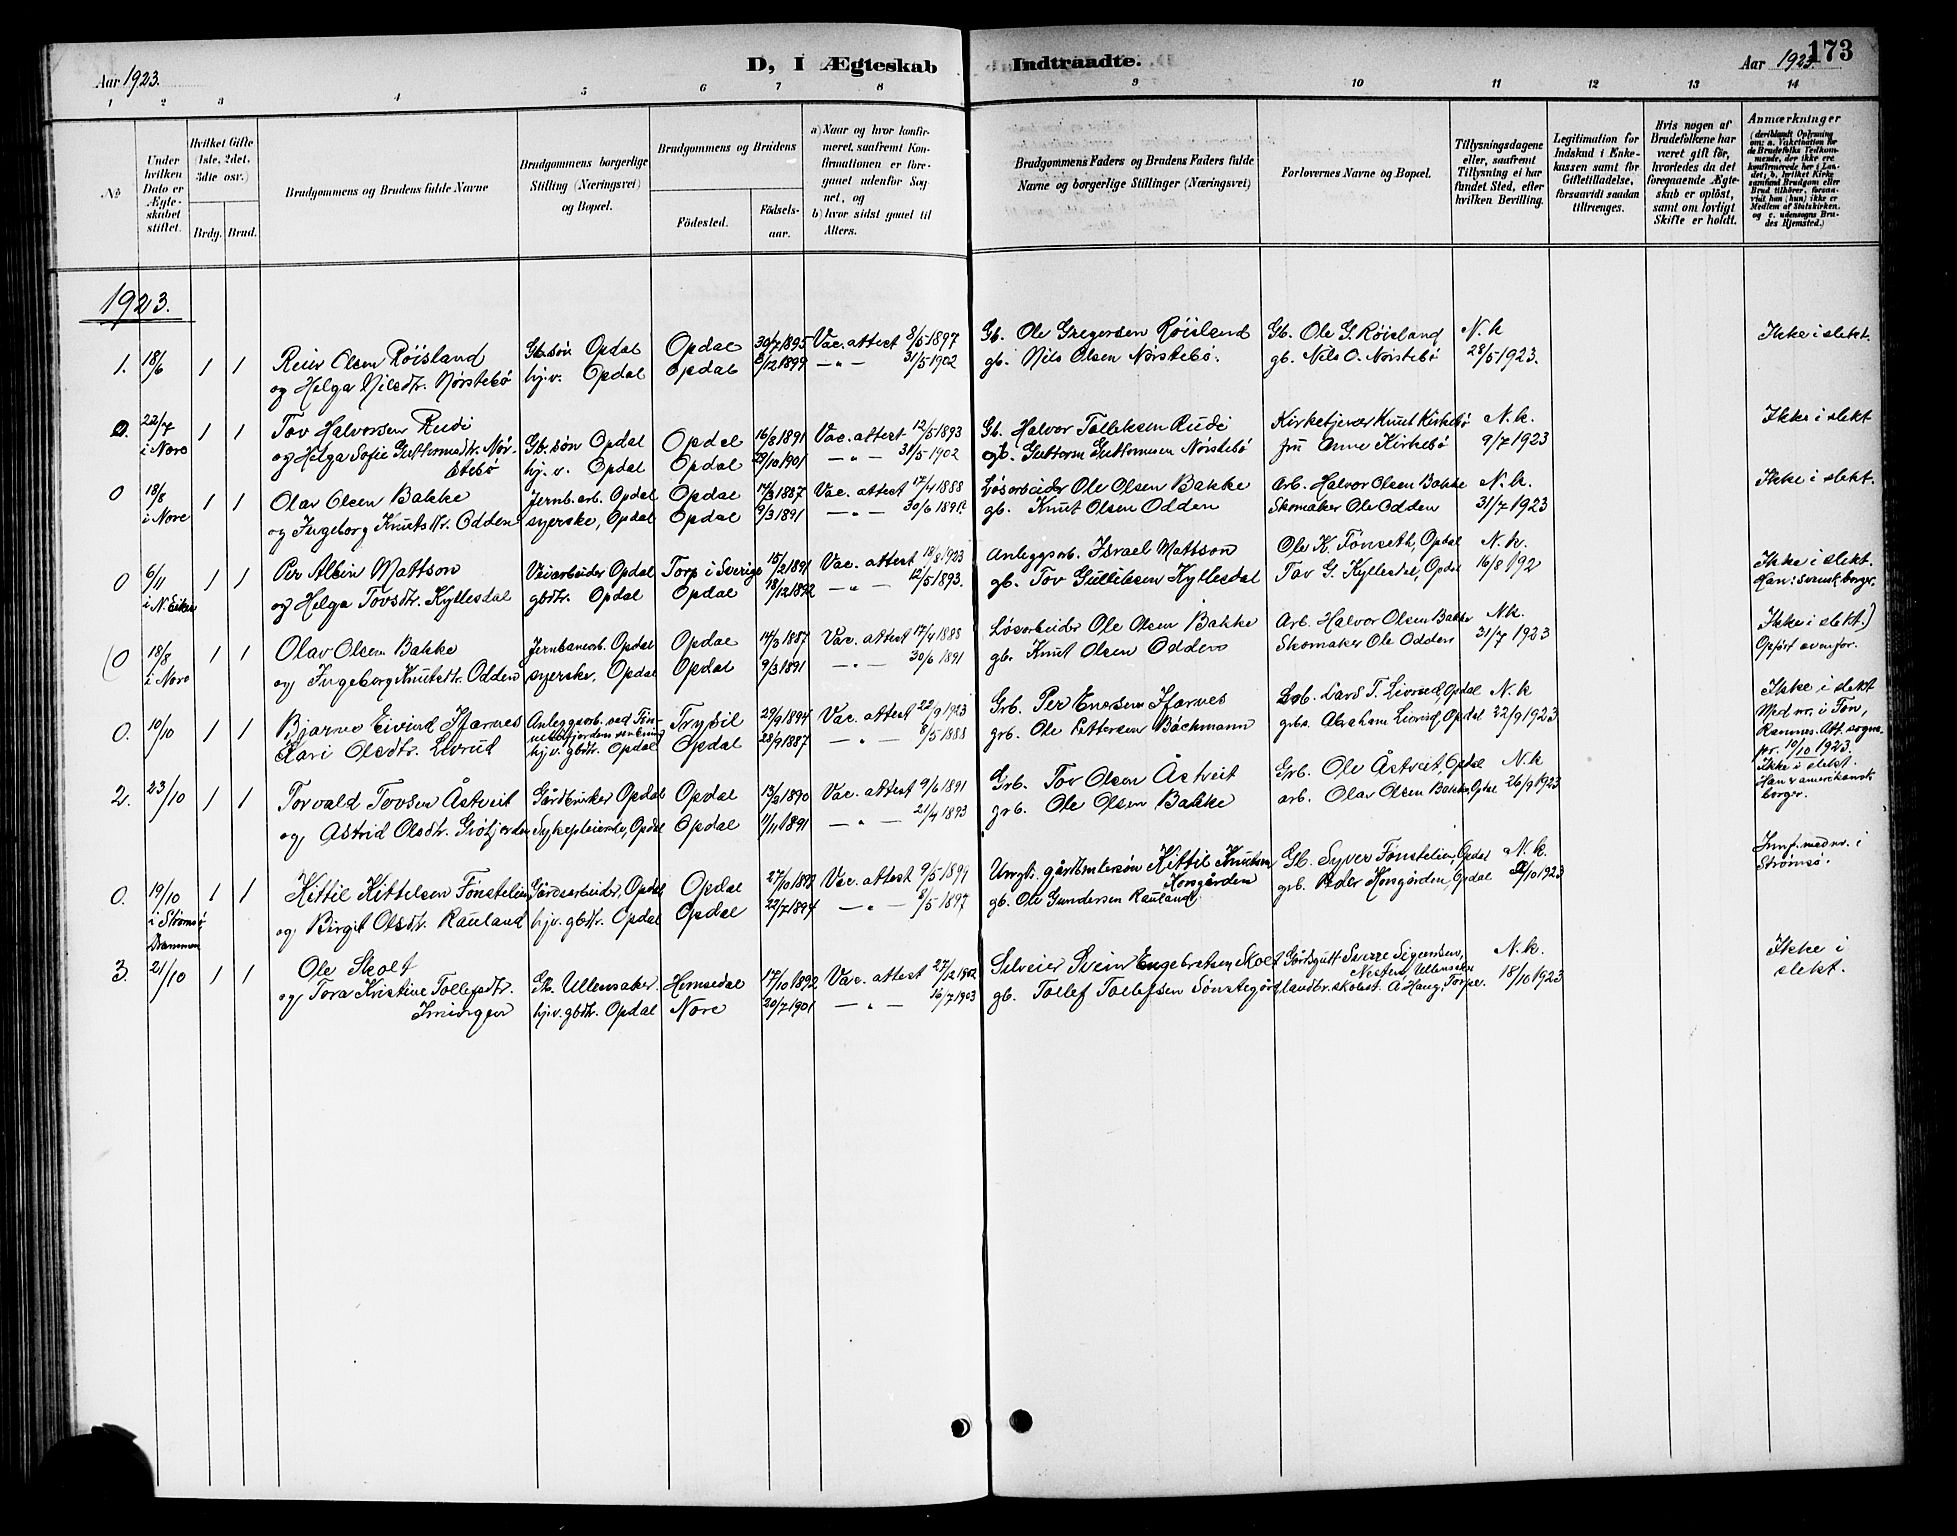 Aar 1923.
D, I Ægteskab
Indtraadte.
Aar 1923.
173
1 2 3 4 5 6 7 8 9 10 11 12 13 14
No
Under hvilken Dato er Ægteskabet stiftet.
Hvilket Gifte (1ste, 2det, 3dte osv.)
Brdg. Brud.
Brudgommens og Brudens fulde Navne
Brudgommens borgerlige Stilling (Næringsvei) og Bopæl.
Brudgommens og Brudens
Födested.
Födselsaar.
a) Naar og hvor konfirmeret, saafremt Konfirmationen er foregaaet udenfor Sognet, og
b) hvor sidst gaaet til Alters.
Brudgommens Faders og Brudens Faders fulde Navne og borgerlige Stillinger (Næringsvei)
Forlovernes Navne og Bopæl.
Tillysningsdagene eller, saafremt Tillysning ei har fundet Sted, efter hvilken Bevilling.
Legitimation for Indskud i Enkekassen for Giftetilladelse, forsaavidt saadan tiltrænges.
Hvis nogen af Brudefolkene har været gift för, hvorledes da det foregaaende Ægteskab er oplöst, samt om lovligt Skifte er holdt.
Anmærkninger
(deriblandt Oplysning om: a. Vakcination for de Brudefolks Vedkommende, der ikke ere konfirmerede her i Landet; b. hvilket Kirkesamfund Brudgom eller Brud tilhörer, forsaavidt han (hun) ikke er Medlem af Statskirken, og c. udensogns Brudes Hjemsted.)
1923.
1. 18/6 1 1 Reier Olsen Röisland Gb.sön Opdal Opdal 30/7 1895 Vac. attest 8/5 1897 Gb. Ole Gregersen Röisland Gb. Ole G. Röisland N.k Ikke i slekt.
og Helga Nilsdtr. Nörstebö hj.v. Opdal Opdal 8/12 1899 — " — 31/5 1902 gb. Nils Olsen Nörstebö. gb. Nils O. Nörstebö 28/5 1923.
0. 22/7 i Nore 1 1 Tov Halvorsen Rudi Gb. sön Opdal Opdal 16/8 1891 Vac. attest 12/5 1893 Gb. Halvor Tollefsen Rudi Kirketjener Knut Kirkebö N.k. Ikke i slekt
og Helga Sofie Guttormsdtr. Nörstebö hj.v. Opdal Opdal 29/10 1901 — " — 31/5 1902 gb. Guttorm Guttormsen Nörstebö fru Anne Kirkebö 9/7 1923
0 18/8 i Nore 1 1 Olav Olsen Bakke Jernb.arb. Opdal Opdal 14/3 1887 Vac. attest 17/4 1888 Lösarbeider Ole Olsen Bakke Arb. Halvor Olsen Bakke N.k. Ikke i slekt.
og Ingeborg Knutsdtr. Odden syerske, Opdal Opdal 9/3 1891 — " — 30/6 1891 gb. Knut Olsen Odden Skomaker Ole Odden 31/7 1923
0 6/11 i N. Eiker 1 1 Per Albin Mattson Veiarbeider Opdal Torp i Sverige 15/2 1891 Vac. attest 18/8 1923 Anleggsarb. Israel Mattson Ole K. Fönseth, Opdal N.k. Ikke i slekt.
og Helga Tovsdtr. Kyllesdal gbdtr. Opdal Opdal 18/12 1892 — " — 12/5 1893. gb. Tov Gulliksen Kyllesdal Tov G. Kyllesdal, Opdal 16/8 192 Han: svensk borger.
(0 18/8 i Nore 1 1 Olav Olsen Bakke Jernbanearb. Opdal Opdal 14/3 1887 Vac. attest 17/4 1888 Lösarbeider Ole Olsen Bakke Arb. Halvor Olsen Bakke N.k. Ikke i slekt.)
og Ingeborg Knutsdtr. Odden syerske, Opdal Opdal 9/3 1891 — " — 30/6 1891 gb. Knut Olsen Odden Skomaker Ole Odden 31/7 1923 Opfört ovenfor.
0. 10/10 1 1 Bjarne Eivind Anleggsarb. ved Trysil 29/9 1894 Vac. attest 22/9 1923 Grb. Per Lars T. Livrud, Opdal N.k Ikke i slekt
Kari Olsdtr. Livrud hj.v. gbdtr. Opdal Opdal 28/9 1887 — " — 8/5 1888 grb. Ole Pettersen Bächmann grbr. Abraham Livrud, Opdal 22/9 1923 Med nr. i Ton, Ramnes. Att. sognepr. 10/10 1923.
2. 23/10 1 1 Torvald Tovsen Åstveit Gårdbruker Opdal Opdal 13/2 1890 Vac. attest 9/6 1891 Grb. Tov Olsen Åstveit Grb. Ole Åstveit, Opdal N.k Ikke i slekt.
og Astrid Olsdtr. Gröfjorden Sykepleierske, Opdal Opdal 11/11 1891 — " — 21/4 1893 grb. Ole Olsen Bakke arb. Olav Olsen Bakke, Opdal 26/9 1923 Han amerikansk borger.
0. 19/10 i Strömsö Drammen 1 1 Kittil Kittelsen Fönstelien Gårdsarbeider, Opdal Opdal 27/10 1897 Vac. attest 9/5 1899 Ungk. gårdmansön Kittil Knutsen Kongården Gb. Syver Fönstelien, Opdal N.k. Innf. med nr. i Strömsö.
og Birgit Olsdtr. Rauland hj.v. gbdtr. Opdal Opdal 22/7 1894 — " — 8/5 1897 gb. Ole Gundersen Rauland grb. Peder Kongården, Opdal 2/10 1923
3. 21/10 1 1 Ole Skolt Gb. Ullensaker Hemsedal 17/10 1892 Vac. attest 27/2 1902 Selveier Svein Engebretsen Skolt Gårdsgutt Sverre Sigurdsen, Nesten, Ullensaker N.k. Ikke i slekt.
og Tora Kristine Tollefsdtr. Imingen hj.v. gbdtr. Opdal Nore 20/7 1901 — " — 16/7 1903 gb. Tollef Tollefsen Sönstegörd landbr. skolest. A Haug, Torpe. 18/10 1923